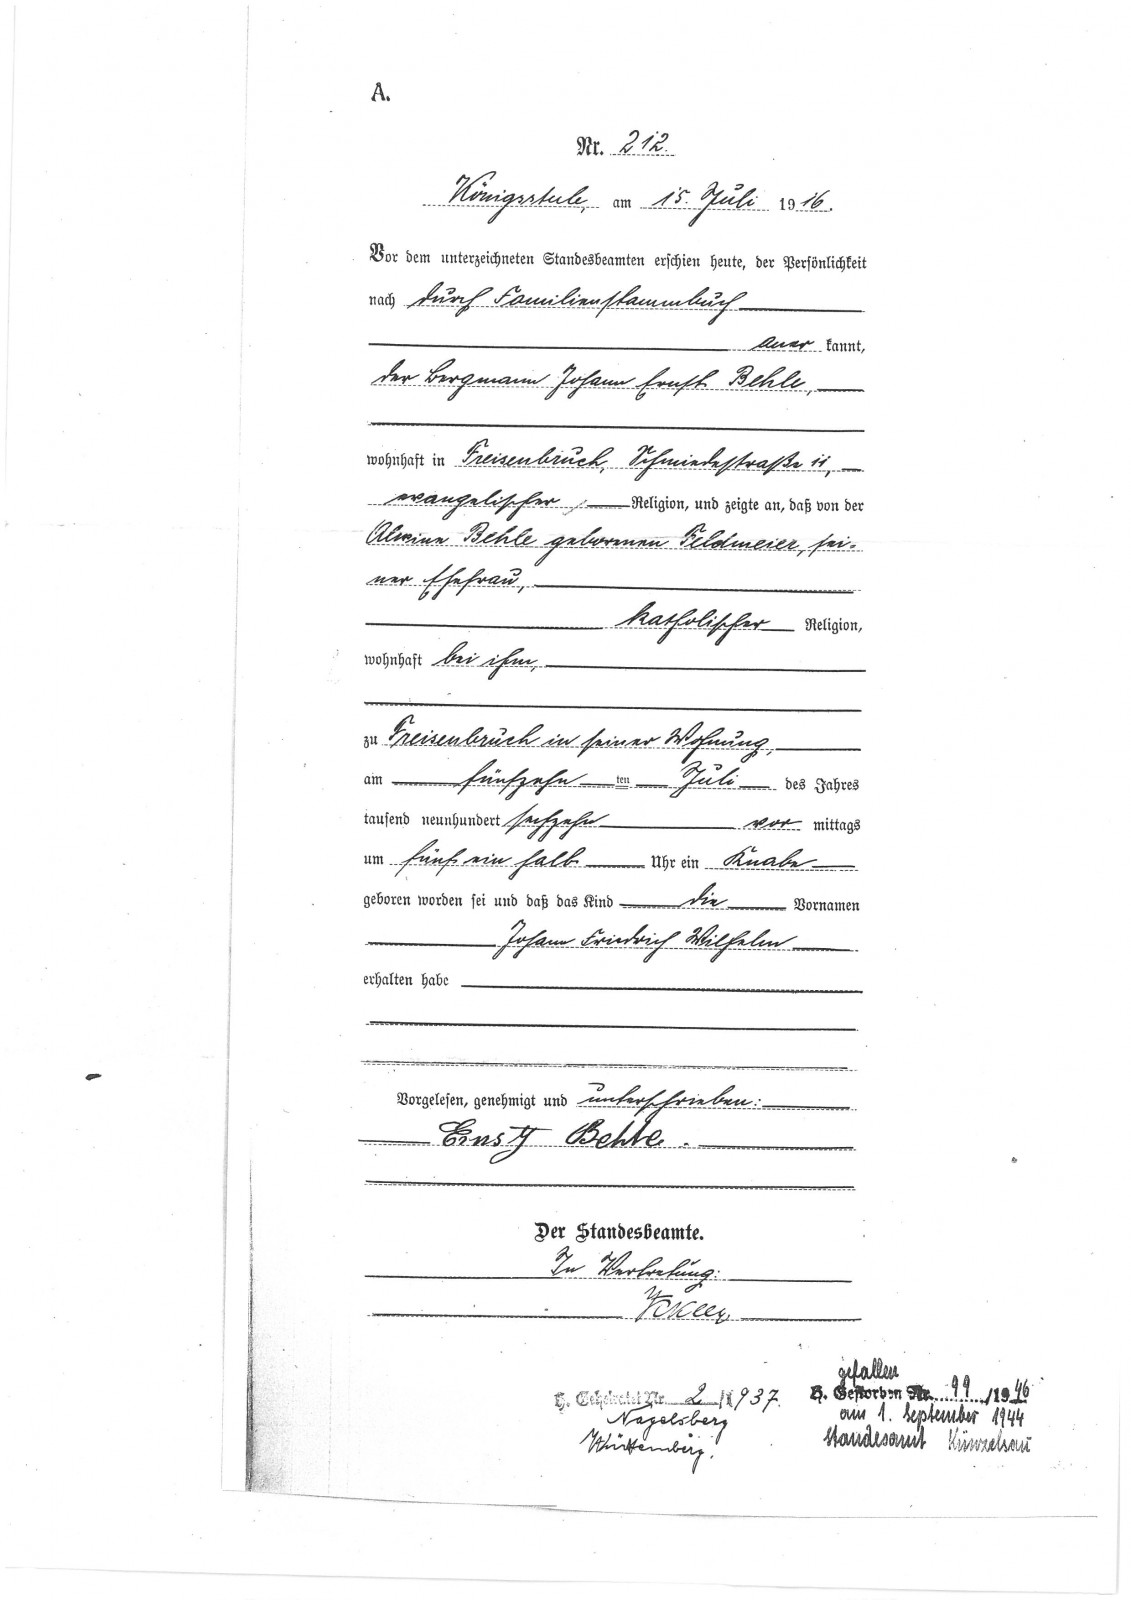 A.
Nr. 212.
Königssteele, am 15. Juli 1916.
Vor dem unterzeichneten Standesbeamten erschien heute, der Persönlichkeit
nach durch Familienstammbuch
aner kannt,
der Bergmann Johann Ernst Behle,
wohnhaft in Freisenbruch, Schmiedestraße 11,
evangelischer Religion, und zeigte an, daß von der
Alwine Behle geborenen Feldmeier, sei-
ner Ehefrau,
katholischer Religion,
wohnhaft bei ihm,
zu Freisenbruch in seiner Wohnung,
am fünfzehn ten Juli des Jahres
tausend neunhundert sechzehn vor mittags
um fünf ein halb Uhr ein Knabe
geboren worden sei und daß das Kind die Vornamen
Johann Friedrich Wilhelm
erhalten habe
Vorgelesen, genehmigt und unterschrieben:
Ernst Behle.
Der Standesbeamte.
In Vertretung:
gefallen
H. Geheiratet Nr. 2/1937. H. Gestorben Nr. 99/1946
Nagelsberg am 1. September 1944
Württemberg. Standesamt Künzelsau